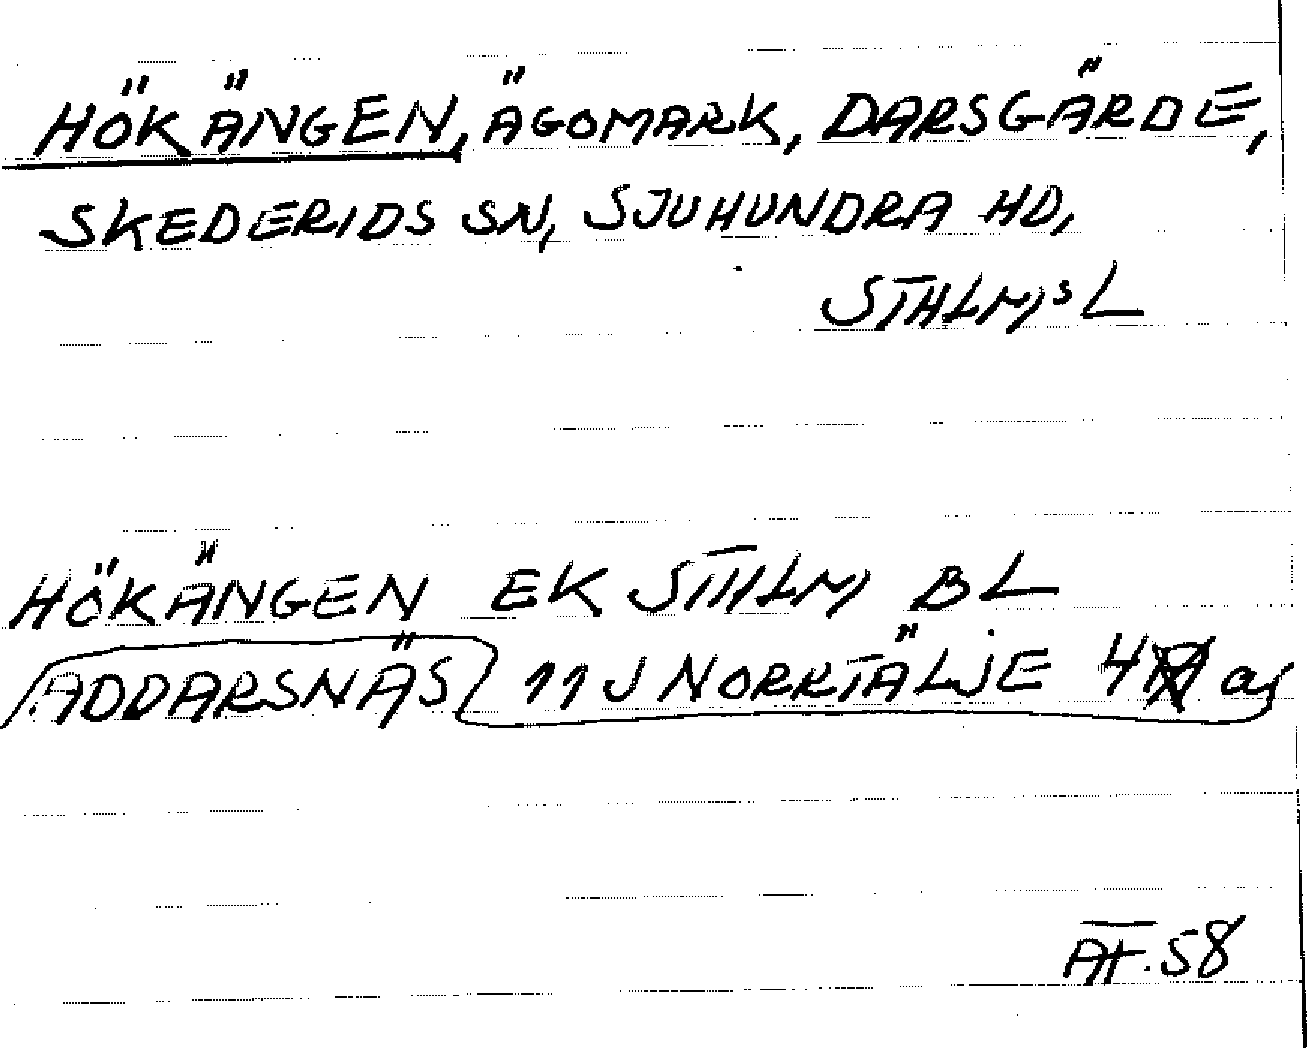 HÖKÄNGEN, ÄGOMARK, DARSGÄRDE,
SKEDERIDS SN, SJUHUNDRA HD,
STHLMS L
HÖKÄNGEN EK STHLM BL
ADDARSNÄS 11J NORRTÄLJE 4
AT. 58